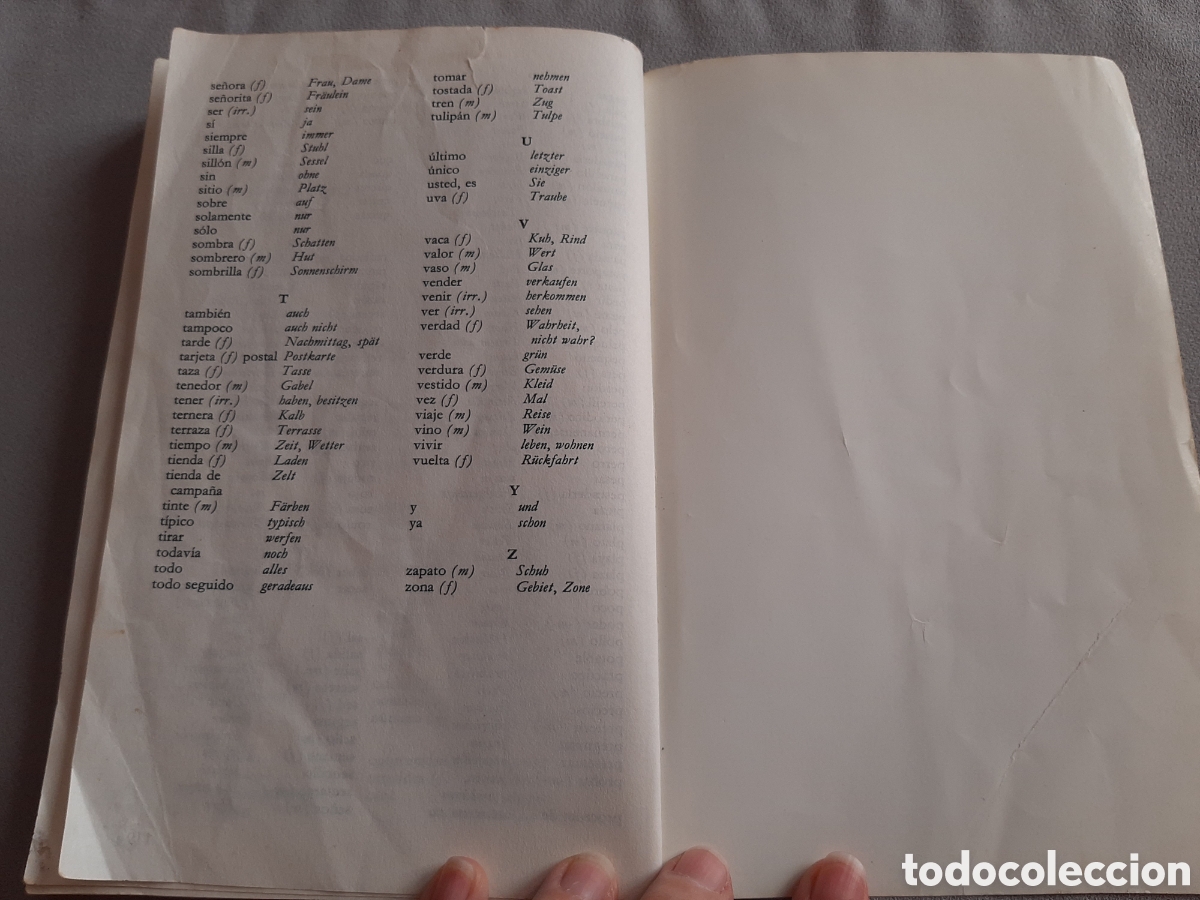 señora (f) Frau, Dame
señorita (f) Fräulein
ser (irr.) sein
sí ja
siempre immer
silla (f) Stuhl
sillón (m) Sessel
sin ohne
sitio (m) Platz
sobre auf
solamente nur
sólo nur
sombra (f) Schatten
sombrero (m) Hut
sombrilla (f) Sonnenschirm
T
también auch
tampoco auch nicht
tarde (f) Nachmittag, spät
tarjeta (f) postal Postkarte
taza (f) Tasse
tenedor (m) Gabel
tener (irr.) haben, besitzen
ternera (f) Kalb
terraza (f) Terrasse
tiempo (m) Zeit, Wetter
tienda (f) Laden
tienda de Zelt
campaña
tinte (m) Färben
típico typisch
tirar werfen
todavía noch
todo alles
todo seguido geradeaus
tomar nehmen
tostada (f) Toast
tren (m) Zug
tulipán (m) Tulpe
U
último letzter
único einziger
usted, es Sie
uva (f) Traube
V
vaca (f) Kuh, Rind
valor (m) Wert
vaso (m) Glas
vender verkaufen
venir (irr.) herkommen
ver (irr.) sehen
verdad (f) Wahrheit,
nicht wahr?
verde grün
verdura (f) Gemüse
vestido (m) Kleid
vez (f) Mal
viaje (m) Reise
vino (m) Wein
vivir leben, wohnen
vuelta (f) Rückfahrt
Y
y und
ya schon
Z
zapato (m) Schuh
zona (f) Gebiet, Zone
todocoleccion